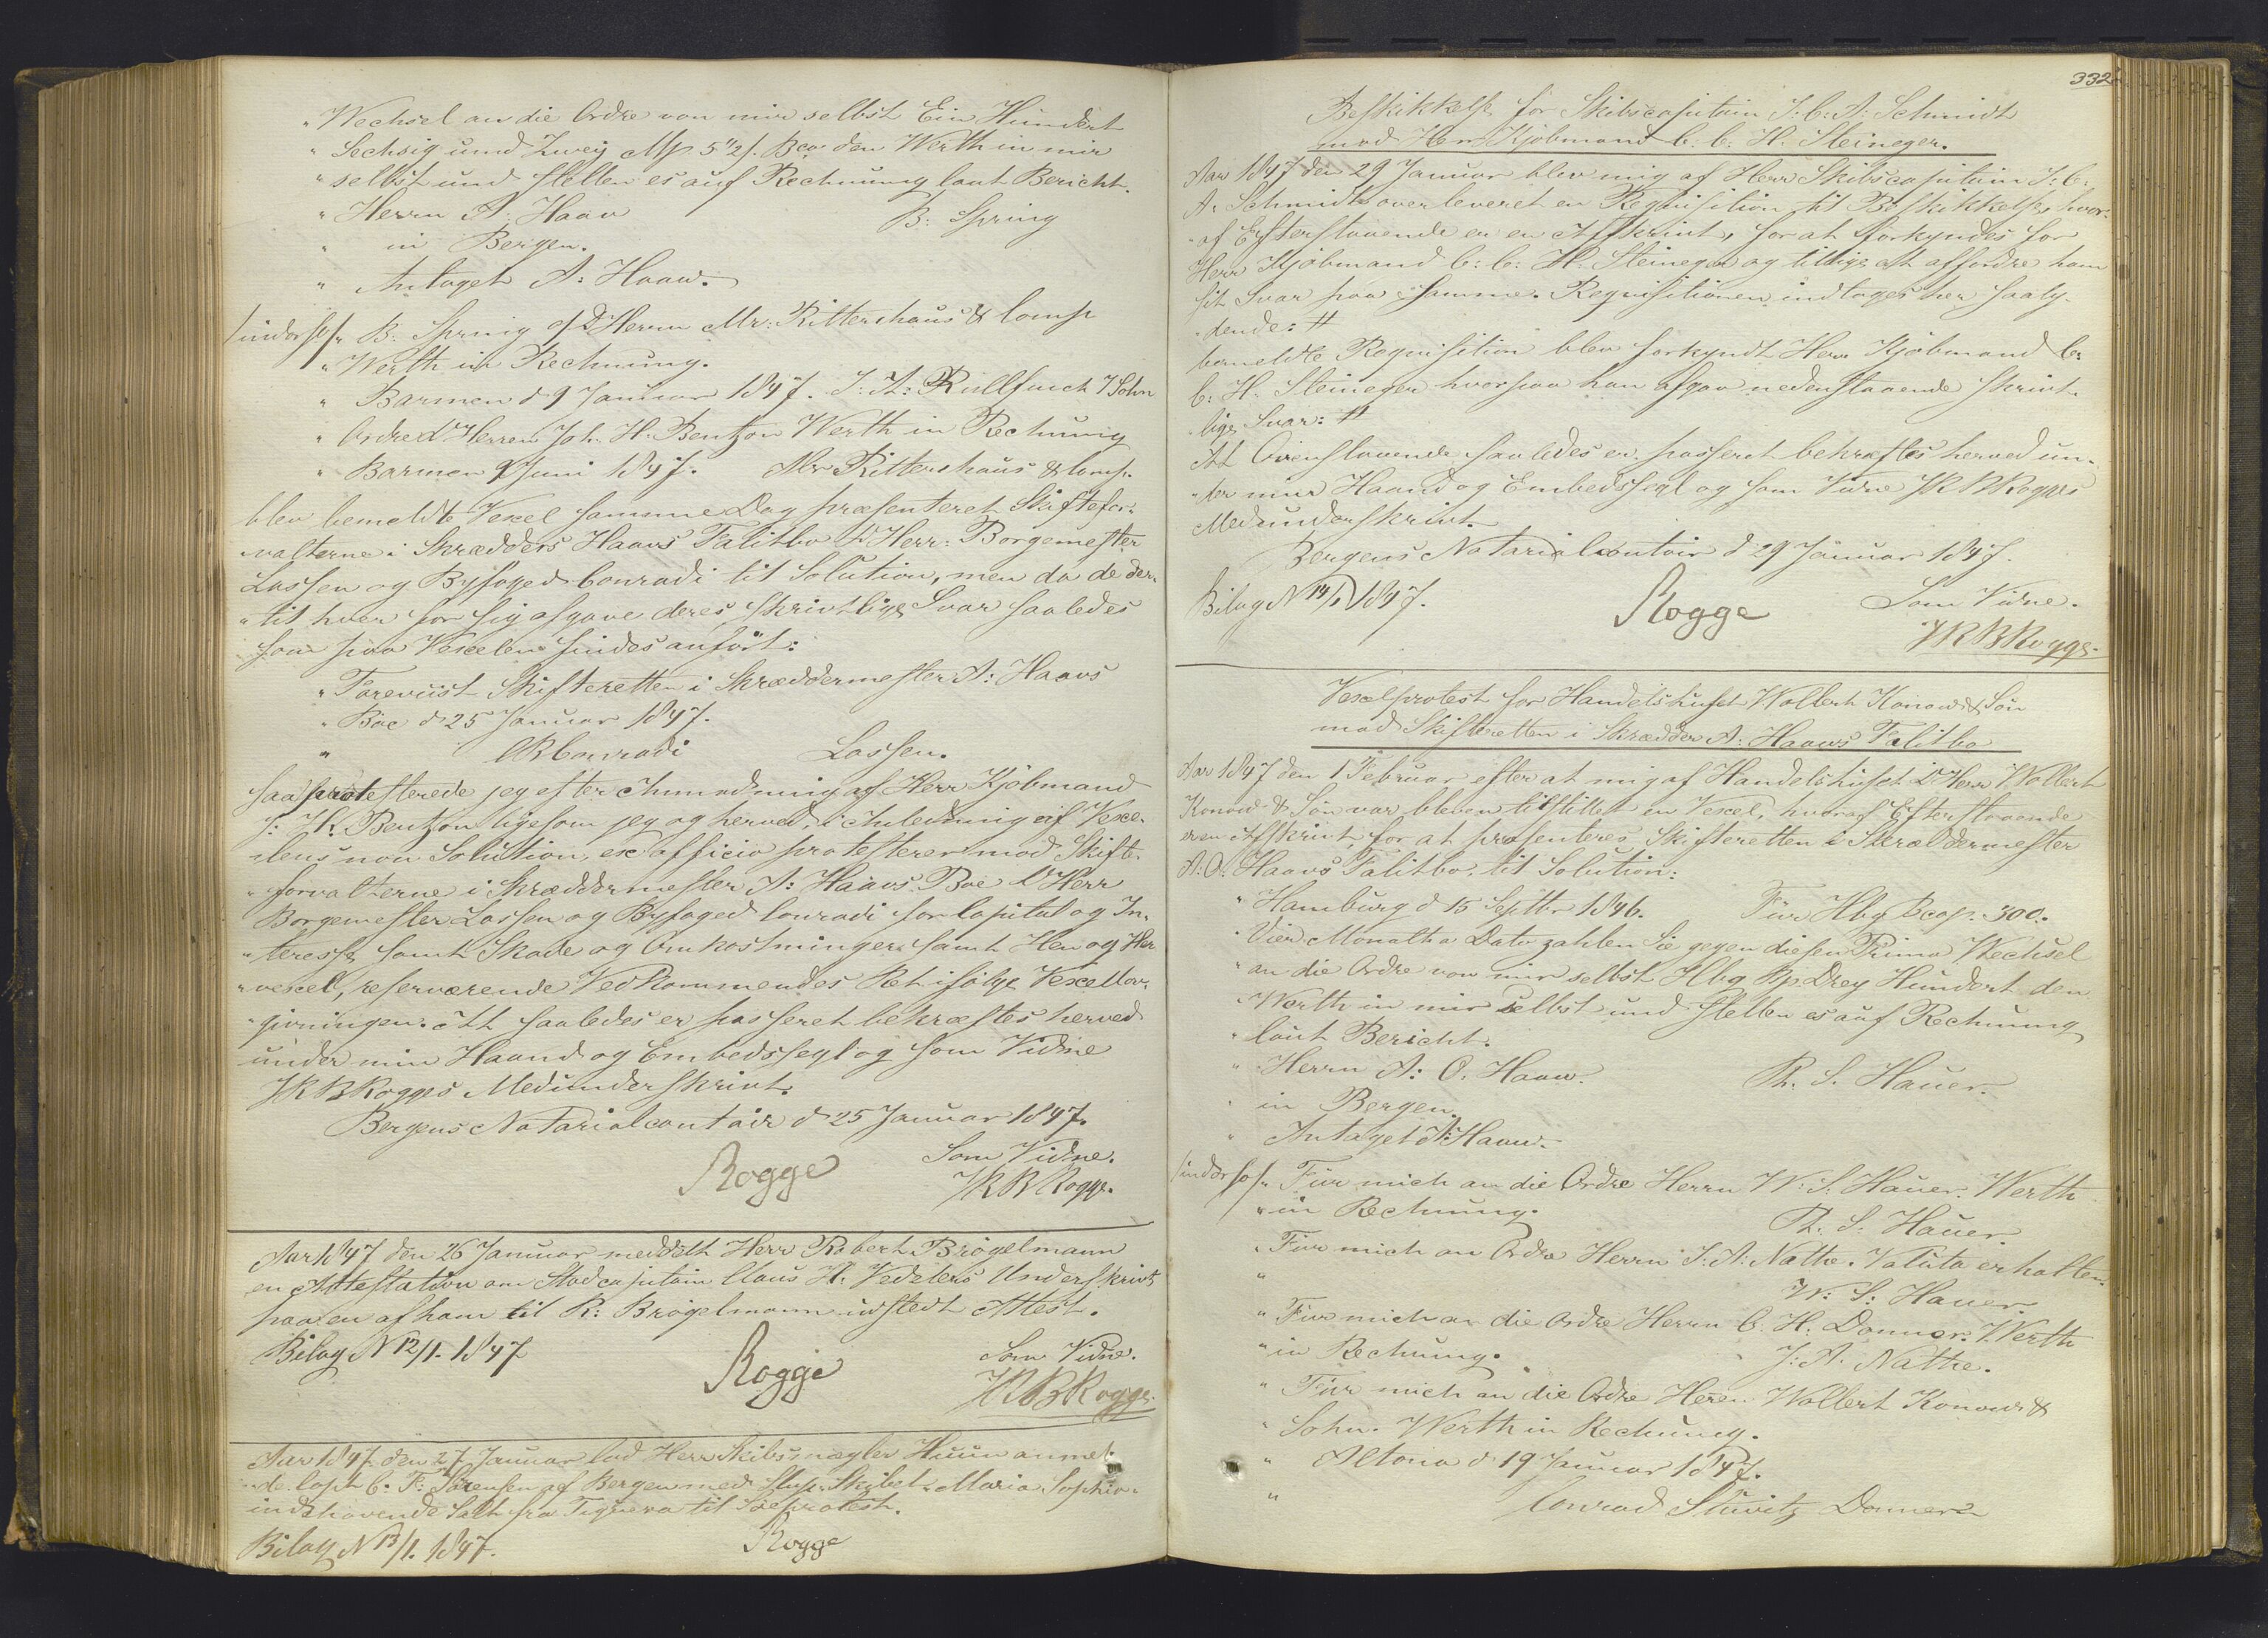 "Wechsel an die Ordre von mir selbst Ein Hundert
"Sechsig und Zwey Mß 5"2ß. Bco den Werth in mir
"selbst und stellen es auf Rechnung laut Bericht.
"Herrn A. Haav B: Spring
" in Bergen.
" Antaget A: Haaw.
indorso B. Spring Herrn Mr: Rittershaus & Comp
"Werth in Rechnung.
" Barmen d 9 Januar 1847. & Sohn
" Ordre d Herren Joh. H. Bentzon Werth in Rechnung
" Barmen 9 Juni 1847. Mr Rittershaus & Comp.
blev bemeldte Vexel samme Dag præsenteret Skiftefor-
"valterne i Skrædders Haavs Falitbo Dhrr: Borgemester
Lassen og Byfoged Conradi til Solution, men da de der-
"til hver for sig afgave deres skrivtlige Svar saaledes
som paa Vexelen findes anført:
"Foreviist Skifteretten i Skræddermester A: Haavs
"Boe d 25 Januar 1847.
" Conradi Lassen.
saa protesterede jeg efter Anmodning af Herr Kjöbmand
J: H. Bentzon ligesom jeg og herved, i Anledning af Vexe-
lens non Solution, ex officio protesterer mod Skifte-
"forvalterne i Skræddermester A: Haavs Boe Dhrr
Borgemester Lassen og Byfoged Conradi for Capital og In-
"teresse samt Skade og Omkostninger samt Hen og Her-
"vexel, reserverende Vedkommendes Ret ifölge Vexellov-
"givningen. At saaledes er passeret bekræftes herved
under min Haand og Embedssegl og som Vidne
J R B Rogges Medunderskrivt.
Bergens Notarialcontoir d 25 Januar 1847.
Rogge Som Vidne.
J R B Rogge.
Aar 1847 den 26 Januar meddelt Herr Robert Brögelmann
en Attestation om Stadcapitain Claus H. Vedelers Underskrivt
paa en af ham til R: Brögelmann udstedt Attest.
Bilag N 12/1. 1847 Rogge Som Vidne.
J R B Rogge.
Aar 1847 den 27 Januar lod Herr Skibsmægler Huun anmel-
"de Capt C. F. Sörensen af Bergen med Slup Skibet Maria Sophia
indehavende Salt fra til Söeprotest.
Bilag N 13/1. 1847. Rogge
332
Beskikkelse for Skibscapitain J: C: A: Schmidt
mod Herr Kjöbmand C: C: H. Steineger.
Aar 1847 den 29 Januar blev mig af Herr Skibscapitain J: C:
A: Schmidt overleveret en Requisition til Beskikkelse, hvor-
"af Efterstaaende er en Afskrivt, for at forkyndes for
Herr Kjöbmand C: C: H. Steineger og tillige at affordre ham
sit Svar paa samme. Requisitionen indtages her saaly-
"dende: #
bemeldte Requisition blev forkyndt Herr Kjöbmand C:
C: H. Steineger hvorpaa han afgav nedenstaaende skrivt-
lige Svar: #
At Ovenstaaende saaledes er passeret bekræftes herved un-
"der min Haand og Embedssegl og som Vidne J R B Rogges
Medunderskrivt.
Bergens Notarialcontoir d 29 Januar 1847.
Bilag N 14/1 1847. Rogge Som Vidne.
J R B Rogge.
Vexelprotest for Handelshuset Wollert Konow & Sön
mod Skifteretten i Skrædder A: Haaws Falitbo
Aar 1847 den 1 Februar efter at mig af Handelshuset Dhrr Wollert
Konow & Sön var bleven tilstillet en Vexel, hvoraf Efterstaaende
er en Afskrivt, for at præsenteres Skifteretten i Skræddermester
A. O. Haavs Falitbo, til Solution:
"Hamburg d 15 Septbr 1846. Für Hbg Bco 300.
"Vier Monathe Dato zahlen Sie gegen diesen Prima Wechsel
"an die Ordre von mir selbst Hbg Drey Hundert den
"Werth in mir selbst und stellen es auf Rechnung
"laut Bericht.
"Herrn A: O. Haaw. Ph. S. Hauer.
" in Bergen.
" Antaget A: Haaw.
indorso Für mich an die Ordre Herrn W: S: Hauer. Werth
"in Rechnung. Ph. S. Hauer.
"Für mich an Ordre Herrn J: A: Nathe. Valuta erhalten.
" W: S: Hauer.
"Für mich an die Ordre Herrn C. H: Donner. Werth
"in Rechnung. J: A: Nathe.
"Für mich an die Ordre Herren Wollert Konow &
"Sohn. Werth in Rechnung.
" Altona d 19 Januar 1847.
" Conrad Donner